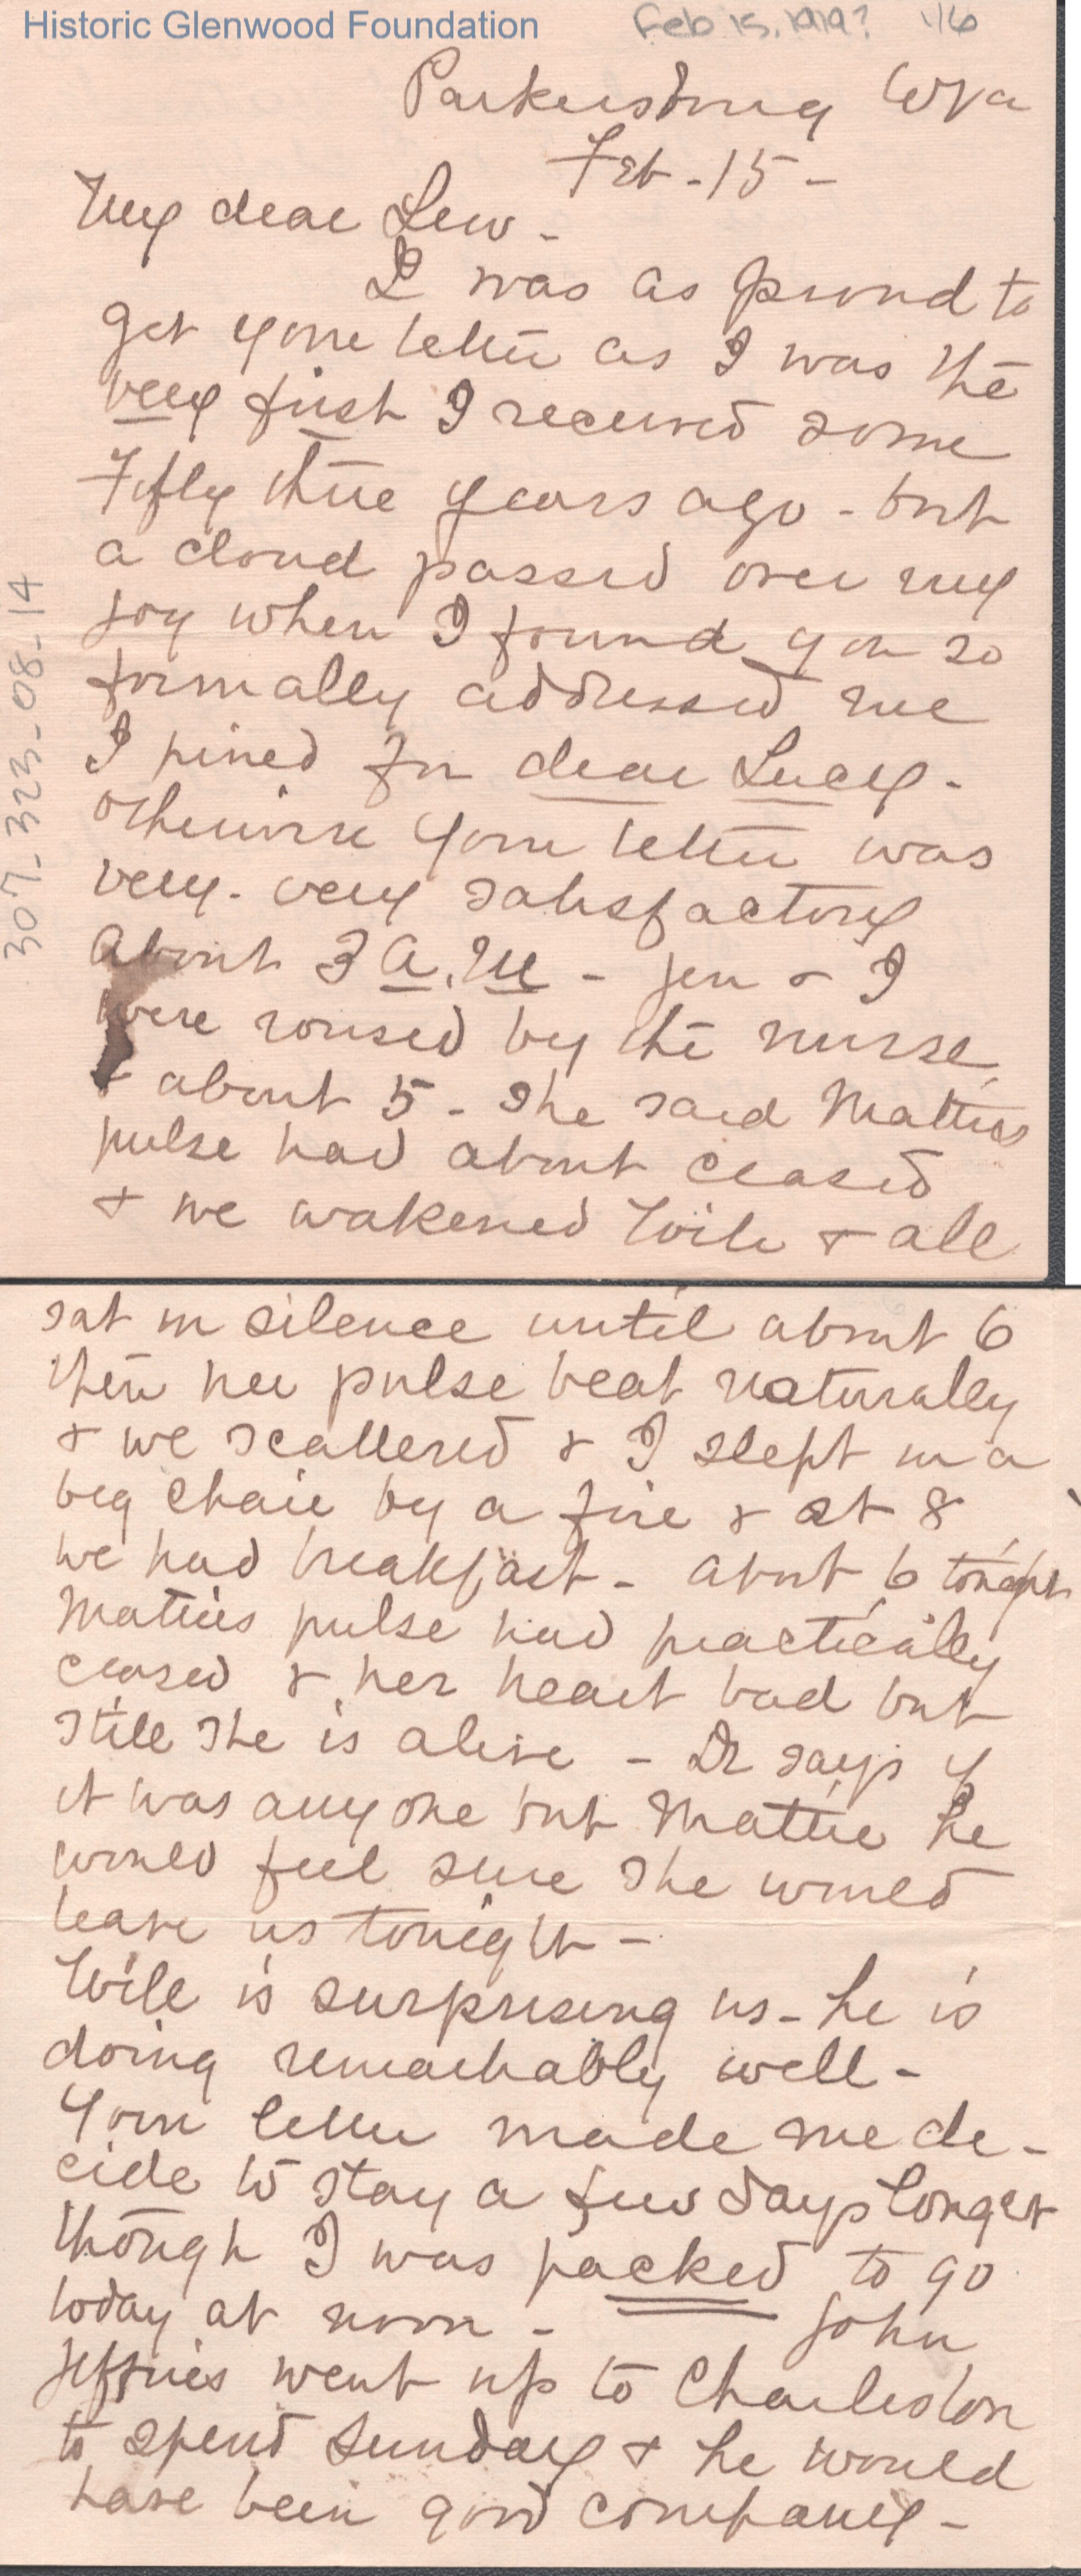 Historic Glenwood Foundation
Feb 15, 1919? 16
Parkersburg W Va
Feb - 15 -
My dear Lew -
I was as proud to
get your letter as I was the
very first I received some
Fifty three years ago - but
a cloud passed over my
joy when I found you so
formally addressed me
I pined for dear Lucy -
otherwise your letter was
very - very satisfactory
About 3 A.M - Jen & I
were roused by the nurse
& about 5 - she said Matties
pulse had about ceased
& we wakened Will & all
307-323-08-14
sat in silence until about 6
then her pulse beat naturally
& we scattered & I slept in a
big chair by a fire & at 8
we had breakfast - about 6 tonight
Matties pulse had practically
ceased & her heart bad but
still she is alive - Dr says if
it was any one but Mattie he
would feel sure she would
leave us tonight -
Will is surprising us - he is
doing remarkably well -
Your letter made me de-
cide to stay a few days longer
though I was packed to go
today at noon - John
Jeffries went up to Charleston
to spend Sunday & he would
have been good company -